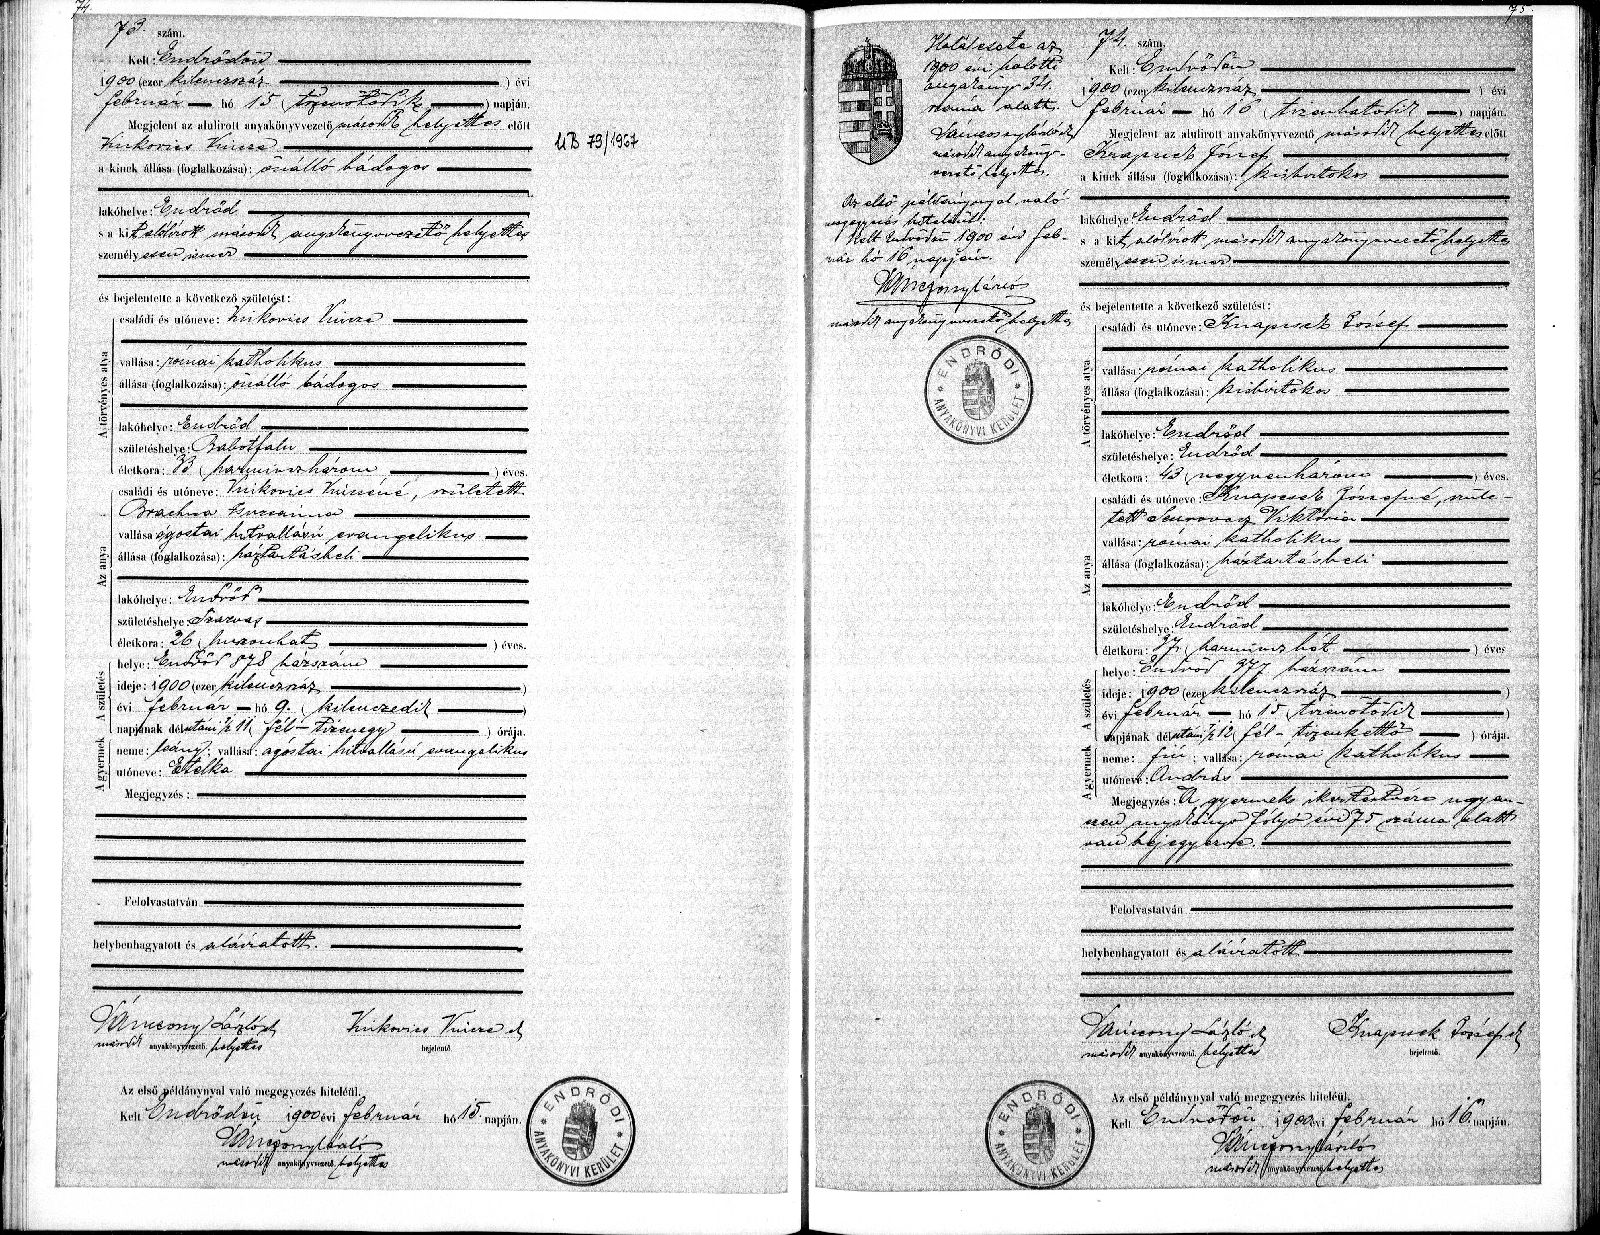 74
73. szám.
Kelt: Endrődön
1900 (ezer kilenczszáz ) évi
február hó 15 (tizenötödik ) napján.
Megjelent az alulirott anyakönyvvezető második helyettes előtt
Vinkovics Vincze
a kinek állása (foglalkozása): önálló bádogos
lakóhelye: Endrőd
s a kit alólirott második anyakönyvvezető helyettes
személyesen ismer
és bejelentette a következő születést:
A törvényes atya
családi és utóneve: Vinkovics Vincze
vallása: római katholikus
állása (foglalkozása): önálló bádogos
lakóhelye: Endrőd
születéshelye: Babotfalu
életkora: 33 (harminczhárom ) éves.
Az anya
családi és utóneve: Vinkovics Vinczéné, született
Brachna Zsuzsánna
vallása ágostai hitvallású evangelikus
állása (foglalkozása): háztartásbeli
lakóhelye: Endrőd
születéshelye: Szarvas
életkora: 26 (huszonhat ) éves.
A születés
helye: Endrőd 878 házszám
ideje: 1900 (ezer kilenczszáz )
évi február hó 9. (kilenczedik )
napjának délutáni 1/2 11 (fél-tizenegy ) órája.
A gyermek
neme: leány; vallása: ágostai hitvallású evangelikus
utóneve: Etelka
Megjegyzés:
Felolvastatván
helybenhagyatott és aláiratott.
László sk Vinkovics Vincze sk
második anyakönyvvezető. helyettes bejelentő.
Az első példánynyal való megegyezés hiteléül.
Kelt Endrődön 1900 évi február hó 15. napján.
második anyakönyvvezető helyettes
ENDRŐDI
ANYAKÖNYVI KERÜLET
UB 79/1967
75
Halálesete az
1900 évi halotti
anyakönyv 34.
száma alatt.
László sk
második anyakönyv-
vezető helyettes.
Az első példánynyal való
megegyezés hiteléül.
Kelt Endrődön 1900 évi feb-
ruár hó 16 napján.
második anyakönyvvezető helyettes
ENDRŐDI
ANYAKÖNYVI KERÜLET
74. szám.
Kelt: Endrődön
1900 (ezer kilenczszáz ) évi
február hó 16 (tizenhatodik ) napján.
Megjelent az alulirott anyakönyvvezető második helyettes előtt
Knapcsek József
a kinek állása (foglalkozása): kisbirtokos
lakóhelye: Endrőd
s a kit, alólirott, második anyakönyvvezető helyettes
személyesen ismer
és bejelentette a következő születést:
A törvényes atya
családi és utóneve: Knapcsek József
vallása: római katholikus
állása (foglalkozása): kisbirtokos
lakóhelye: Endrőd
születéshelye: Endrőd
életkora: 43 (negyvenhárom ) éves.
Az anya
családi és utóneve: Knapcsek Józsefné, szüle-
tett Viktória
vallása: római katholikus
állása (foglalkozása): háztartásbeli
lakóhelye: Endrőd
születéshelye: Endrőd
életkora: 37 (harminczhét ) éves
A születés
helye: Endrőd 377 házszám
ideje: 1900 (ezer kilenczszáz )
évi február hó 15 (tizenötödik )
napjának délutáni 1/2 12 (fél-tizenkettő ) órája.
A gyermek
neme: fiú; vallása: római katholikus
utóneve: András
Megjegyzés: A gyermek ikertestvére ugyan-
ezen anyakönyv folyó évi 75 száma alatt
van bejegyezve.
Felolvastatván
helybenhagyatott és aláiratott
László sk Knapcsek József sk
második anyakönyvvezető. helyettes bejelentő.
Az első példánynyal való megegyezés hiteléül.
Kelt Endrődön 1900 évi február hó 16. napján.
második anyakönyvvezető helyettes
ENDRŐDI
ANYAKÖNYVI KERÜLET